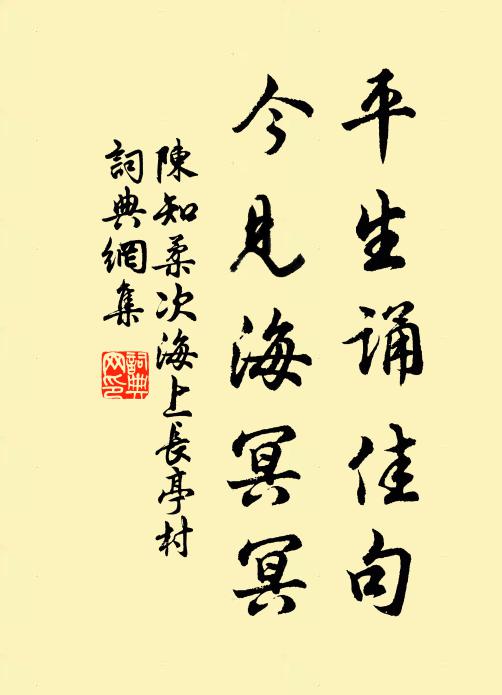 平生诵佳句
今见海冥冥
陳知柔次海上長亭村
詞典網集
詞典网印